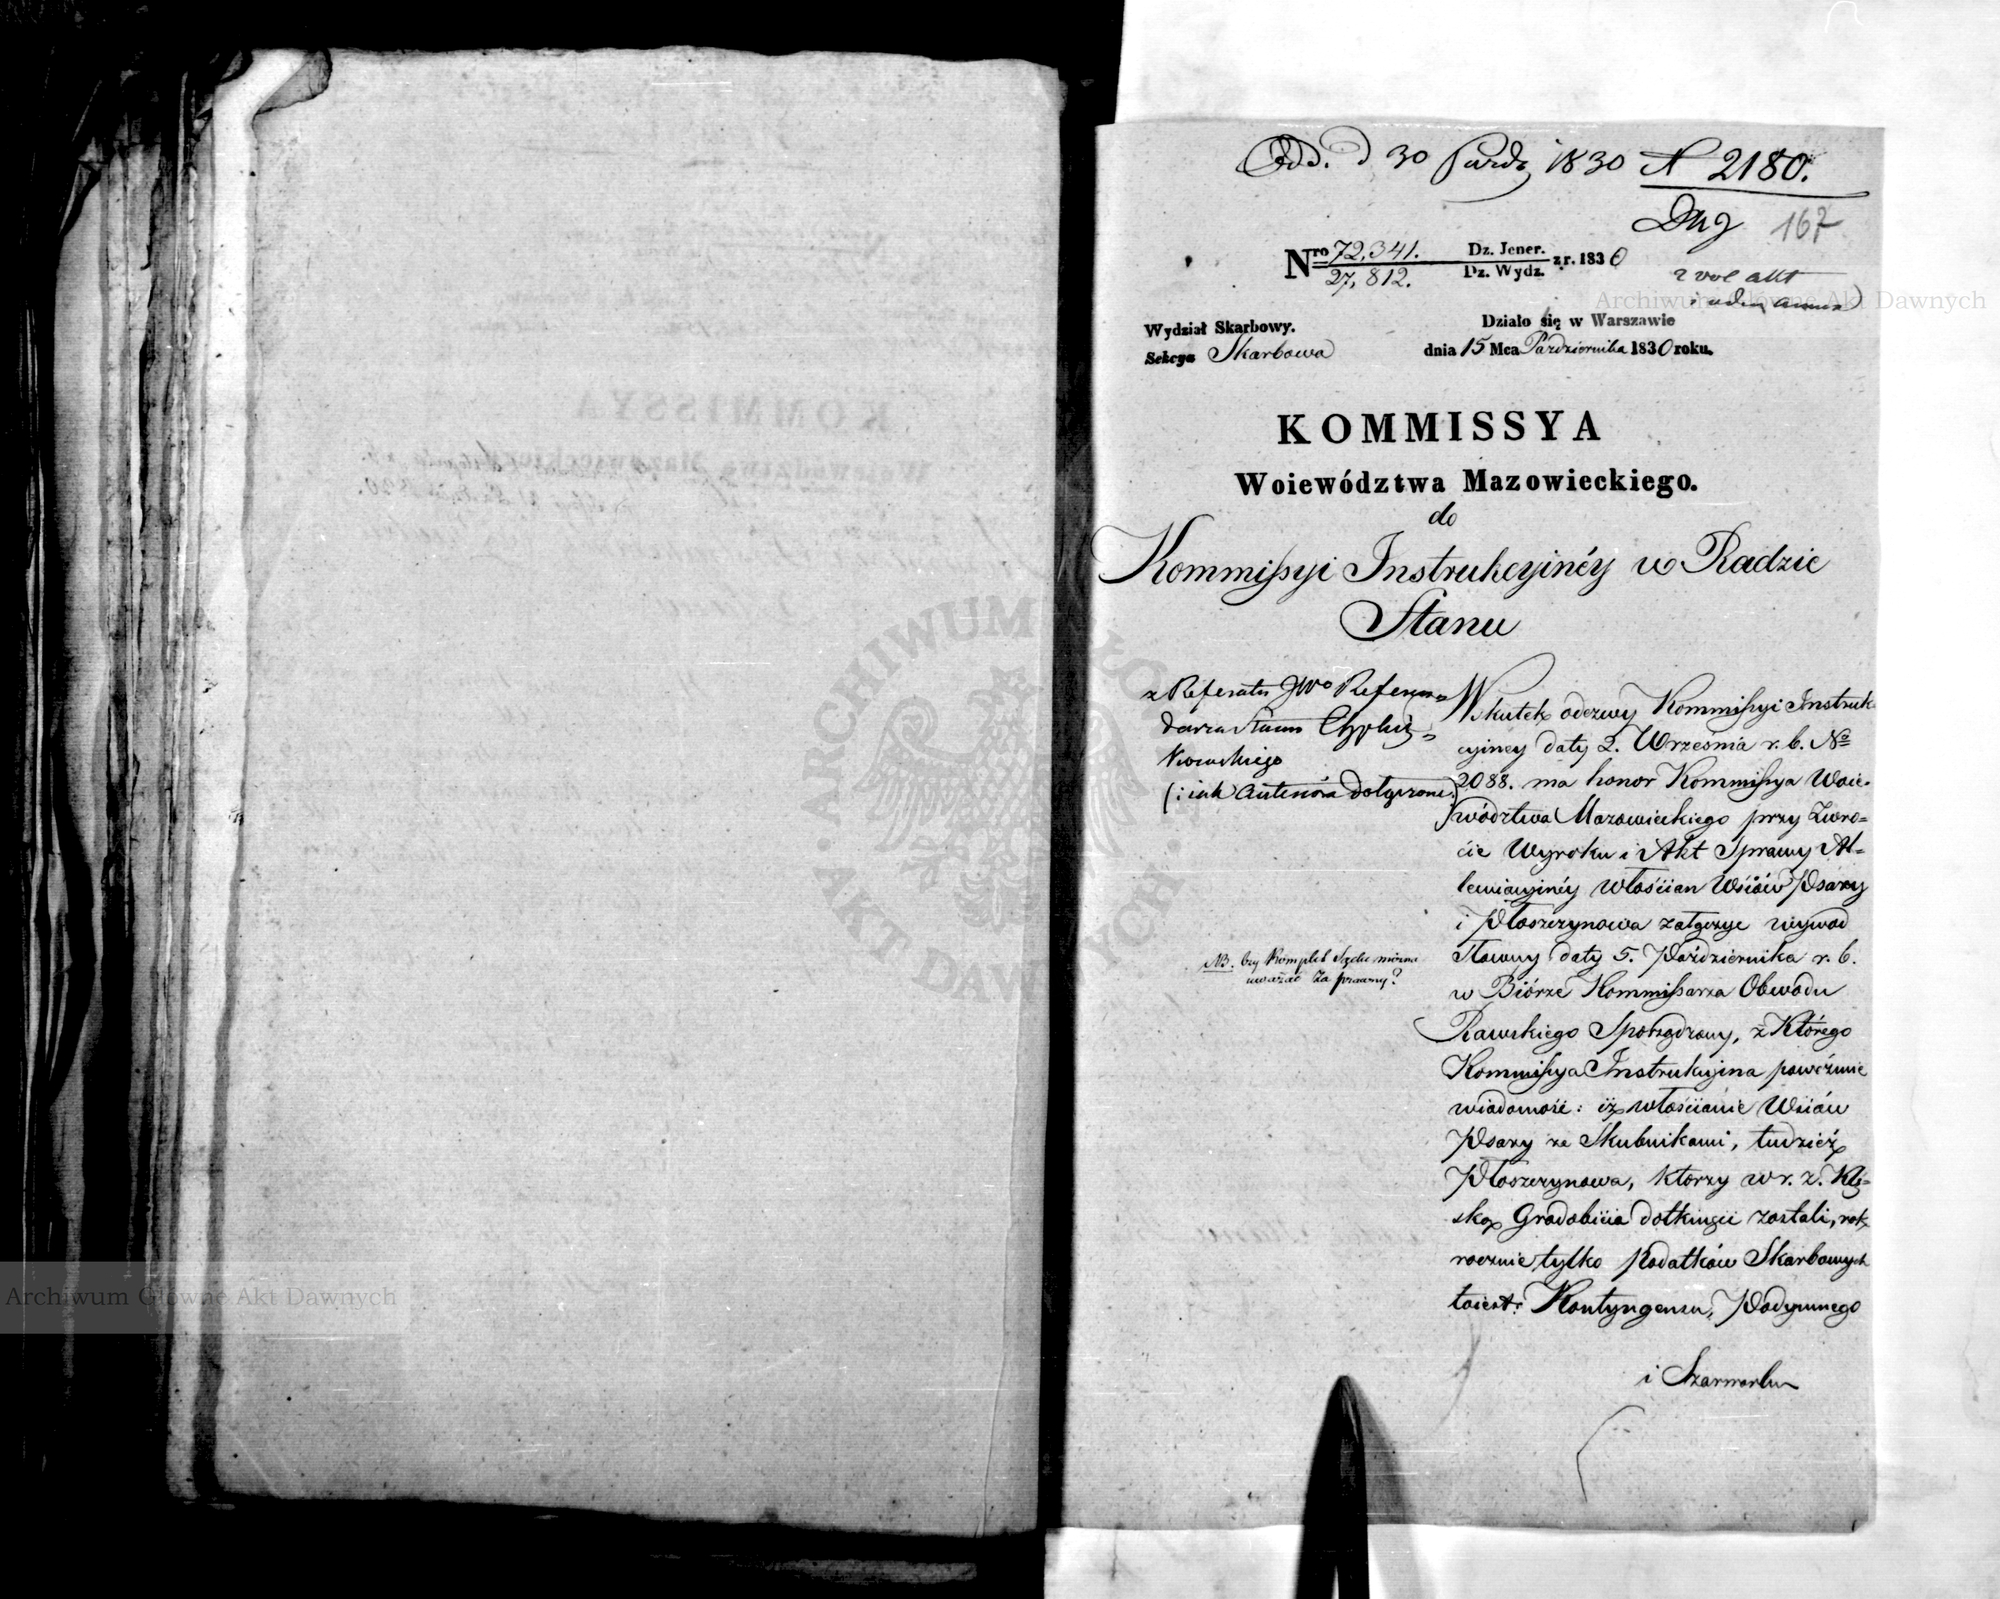 Odd. d 30 Paźdz 1830 N 2180.
167
Nro 72,341. Dz. Jener. z r. 1830
27,812. Dz. Wydz.
2 vol akt
Wydział Skarbowy.
Działo się w Warszawie
Sekcya Skarbowa
dnia 15 Mca Października 1830 roku.
KOMMISSYA
Woiewództwa Mazowieckiego.
do
Kommissyi Instrukcyinéy w Radzie
Stanu
z Referatu JWo Referen=
darza Stanu
(: iak Anteriora dołączone.)
NB. czy Komplet Sądu można
uważać za prawny?
W skutek odezwy Kommissyi Instruk
cyiney daty 2. Września r. b. No
2088. ma honor Kommissya Woie=
wództwa Mazowieckiego przy Zwro=
cie Wyroku i Akt Sprawy Al=
lewiacyinéy włościan Wsiów Psary
i Płoszczynowa załączyc wywod
Słowny daty 5. Października r. b.
w Biórze Kommissarza Obwodu
Rawskiego Sporządzony, z Którego
Kommissya Instrukcyina poweźmie
wiadomość: iż włościanie Wsiów
Psary ze Skubnikami, tudzież
Płoszczynowa, ktorzy w r. z. Klę=
ską Gradobicia dotknięci zostali, rok
rocznie tylko Podatków Skarbowych
toiest: Kontyngensu, Podymnego
i Szarwarku
Archiwum Główne Akt Dawnych
Archiwum Główne Akt Dawnych
ARCHIWUM GŁÓWNE · AKT DAWNYCH ·